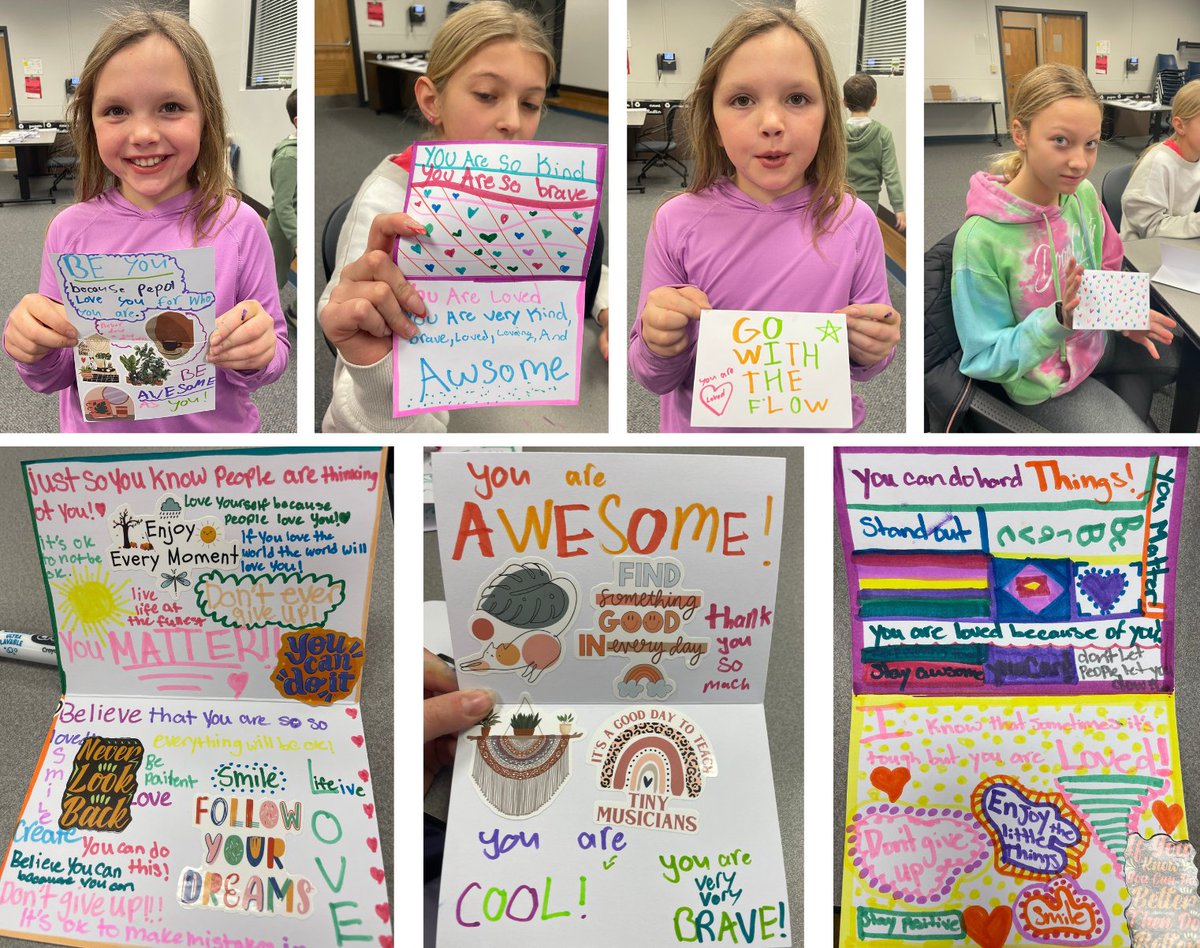 BE YOU
because Pepol
Love you for Who
you are.
BE
AWESOME
AS
YOU!
YOU Are So Kind
YOU Are So brave
You Are Loved
You Are very Kind,
Brave, Loved, Loveing, And
Awsome
GO
WITH
THE
FLOW
you are
Loved
just so you know People are thinking
of you!
Love yourself because
people love you!
it's ok
to not be
ok.
Enjoy
Every Moment
If you love the
world the world will
love you!
Don't ever
give up!
live
life at
the fullest
You MATTER!!!
you
can
do it
Believe that you are so so
loved
everything will be ok!
Smile
Never
Look
Back
Be
Paitent
Love
Smile
Life
Live
LOVE
FOLLOW
YOUR
DREAMS
Create
You can do
this!
Believe You can
because you can
Don't give up!!!
It's ok to make mistakes
ULTRA
Cray
you are
AWESOME!
FIND
something
GOOD
IN every day
thank
you
so
mach
IT'S A GOOD DAY TO TEACH
TINY
MUSICIANS
you are
COOL!
you are
very
very
BRAVE!
You can do hard Things!
You Matter!!
Stand out
Be
Brave
You are loved because of you!
Stay awesome
you can!
don't Let
People Let you
down
I know that sometimes it's
tough but you are Loved!!
Enjoy the
little
Things
Don't give
up
Stay Positive
Smile
Know
You Can Do
Better
Then Do